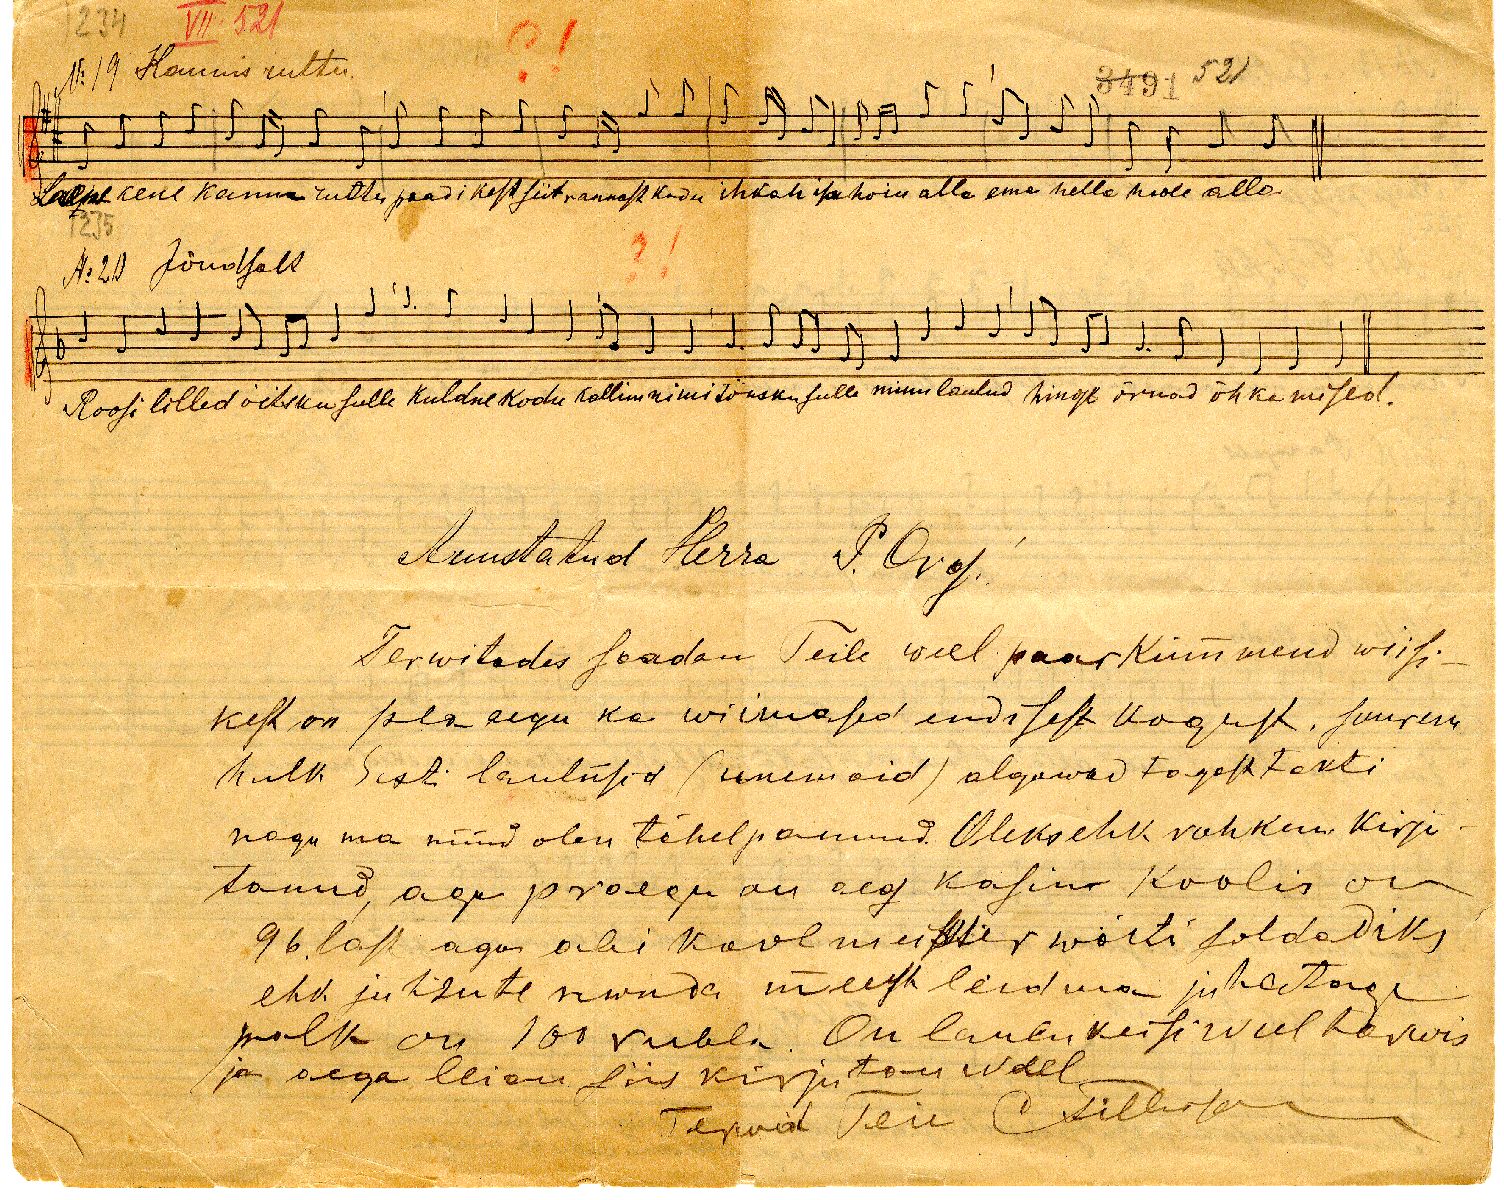 1234 VII 521 ?!
№ 19 Kannis ruttu.
3491 521
kene kanna ruttu paadikest siit rannast kodu ihkab isa hoiu alla ema hella hoole alla
1235
№ 20 Jõudsalt ?!
Roosi lilled õitsku sulle kuldne kodu kallim nimi tõusku sulle minu laulud hinge õrnad õhkamised.
Auustatud Herra P. Org!
Terwitades saadan Teile weel paarkümmend wiisi-
kest on pea aegu ka wiimased endisest kogust. suurem
hulk Eesti laulusid (unemaid) algawad tagast takti
nagu ma nüüd olen tähelpannud. Oleks ehk rohkem kirju-
tanud, aga praegu on aeg kasin koolis on
96 last aga abi koolmeister wõeti soldadiks
ehk juhtute mõnda meest leidma juhatage
palk on 100 rubla. On laulukesi weel tarwis
ja aega leian siis kirjutan weel
Terwid Teie